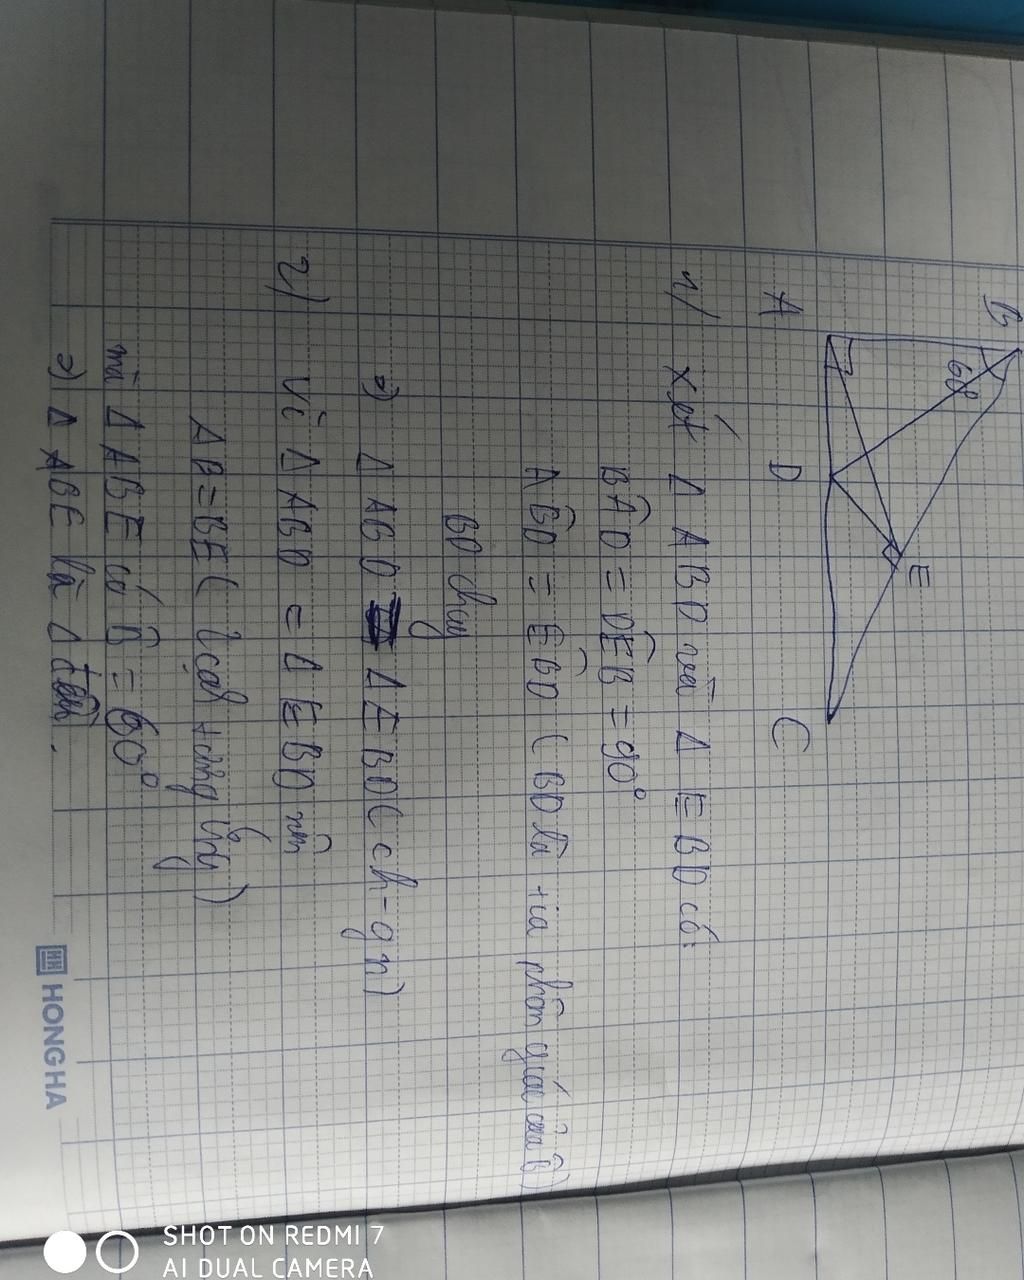 B
60°
E
A
D
C
1/ Xét Δ ABD và Δ EBD có:
BÂD = DÊB = 90°
AB̂D = EB̂D (BD là tia phân giác của B̂)
BD chug
=) Δ ABD = Δ EBD (ch-gn)
2/ Vì Δ ABD = Δ EBD nên
AB = BE (2 cạh tươg ứg)
mà Δ ABE có B̂ = 60°
=) Δ ABE là Δ đều.
HONG HA
SHOT ON REDMI 7
AI DUAL CAMERA